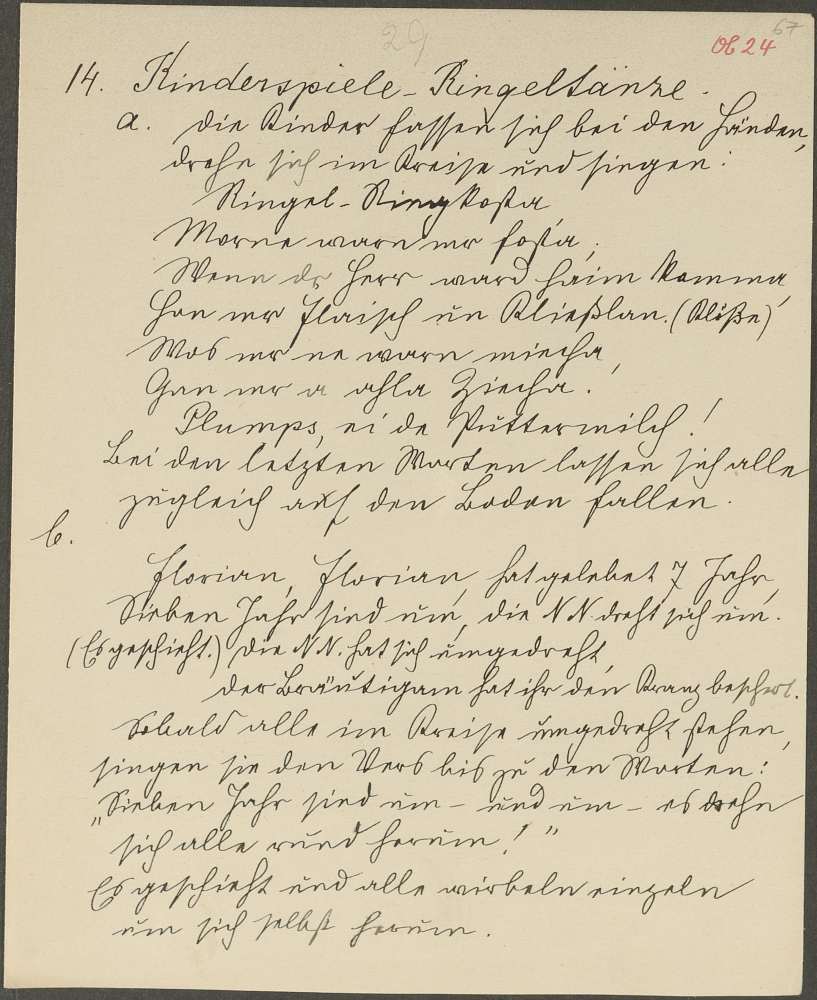 29
67
Ob 24
14. Kinderspiele - Ringeltänze.
a. Die Kinder fassen sich bei den Händen,
drehn sich im Kreise und singen:
Ringel-Ringkosta
Morne warn mr fosta,
Wenn dr Herr ward haim komma,
Hon mr Flaisch un Kließlan. (Klöße)
Wos mr ne warn miecha,
Gan mr a ahla Ziecha.
Plumps, ei de Puttermilch!
Bei den letzten Worten lassen sich alle
zugleich auf den Boden fallen.
b.
Florian, Florian, hat gelebet 7 Jahr,
Sieben Jahr sind um, die N N dreht sich um.
(Es geschieht.) Die N.N. hat sich umgedreht,
der Bräutigam hat ihr den Kranz beschert.
Sobald alle im Kreise umgedreht stehen,
singen sie den Vers bis zu den Worten:
"Sieben Jahr sind um - und um - es drehn
sich alle rund herum!"
Es geschieht und alle wirbeln einzeln
um sich selbst herum.